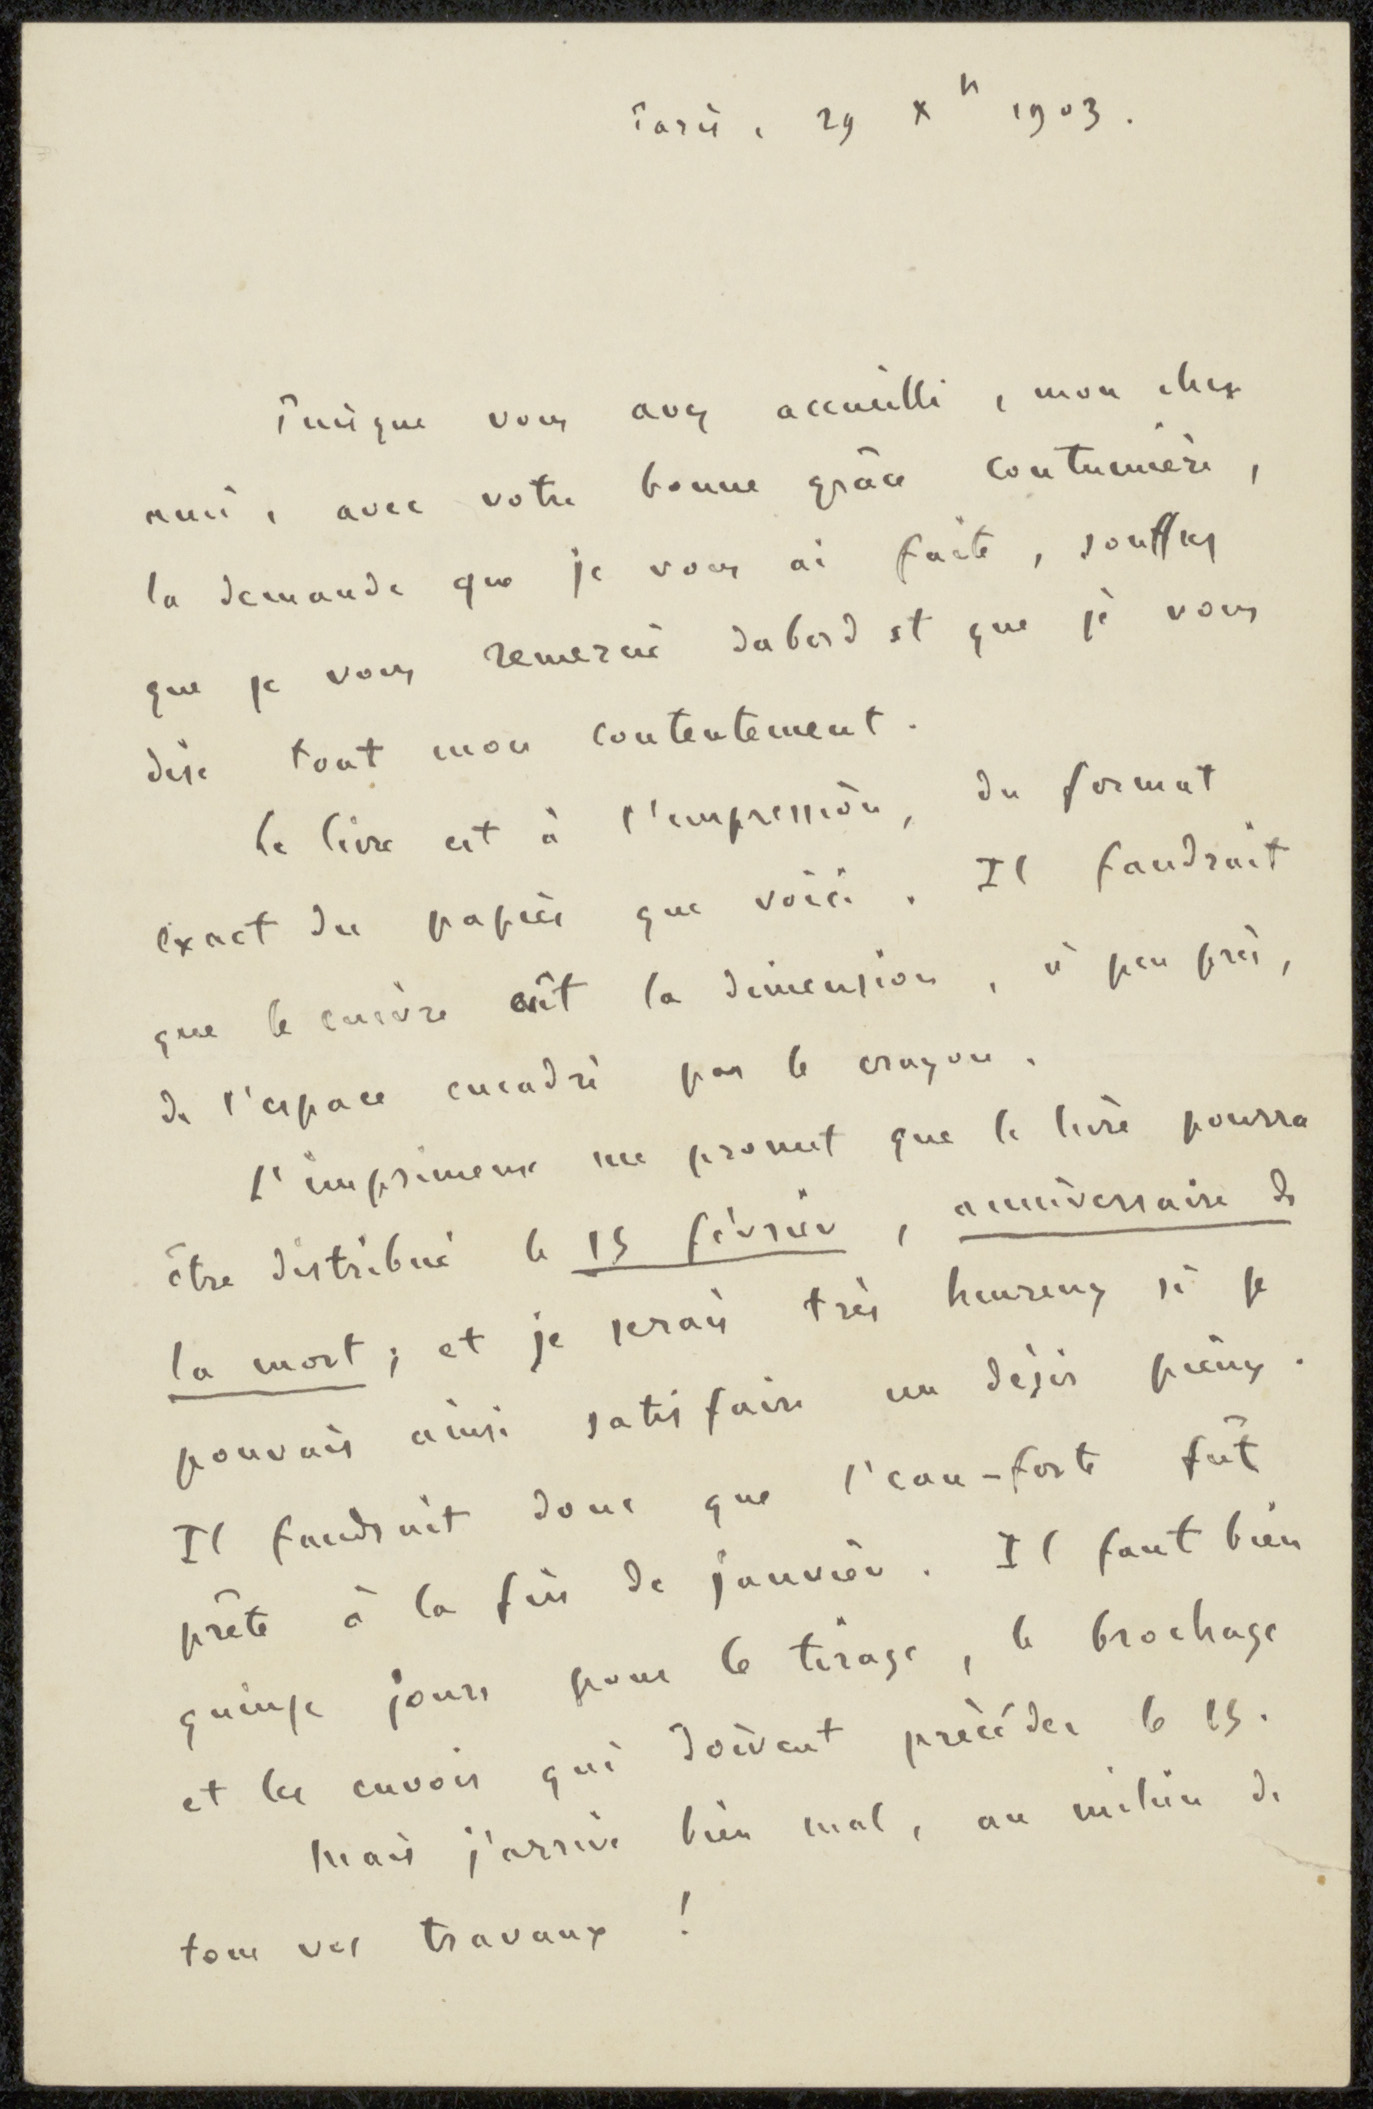 Paris, 29 Xbre 1903.
Puisque vous avez accueilli, mon cher
ami, avec votre bonne grâce coutumière,
la demande que je vous ai faite, souffrez
que je vous remercie dabord et que je vous
dise tout mon contentement.
Le livre est à l'impression, du format
exact du papier que voici. Il faudrait
que le cuivre eût la dimension, à peu près,
de l'espace encadré par le crayon.
L'imprimeur me promet que le livre pourra
être distribué le 15 février, anniversaire de
la mort; et je serais très heureux si je
pouvais ainsi satisfaire un désir pieux.
Il faudrait donc que l'eau-forte fût
prête à la fin de janvier. Il faut bien
quinze jours pour le tirage, le brochage
et les envois qui doivent précéder le 15.
Mais j'arrive bien mal, au milieu de
tous vos travaux !